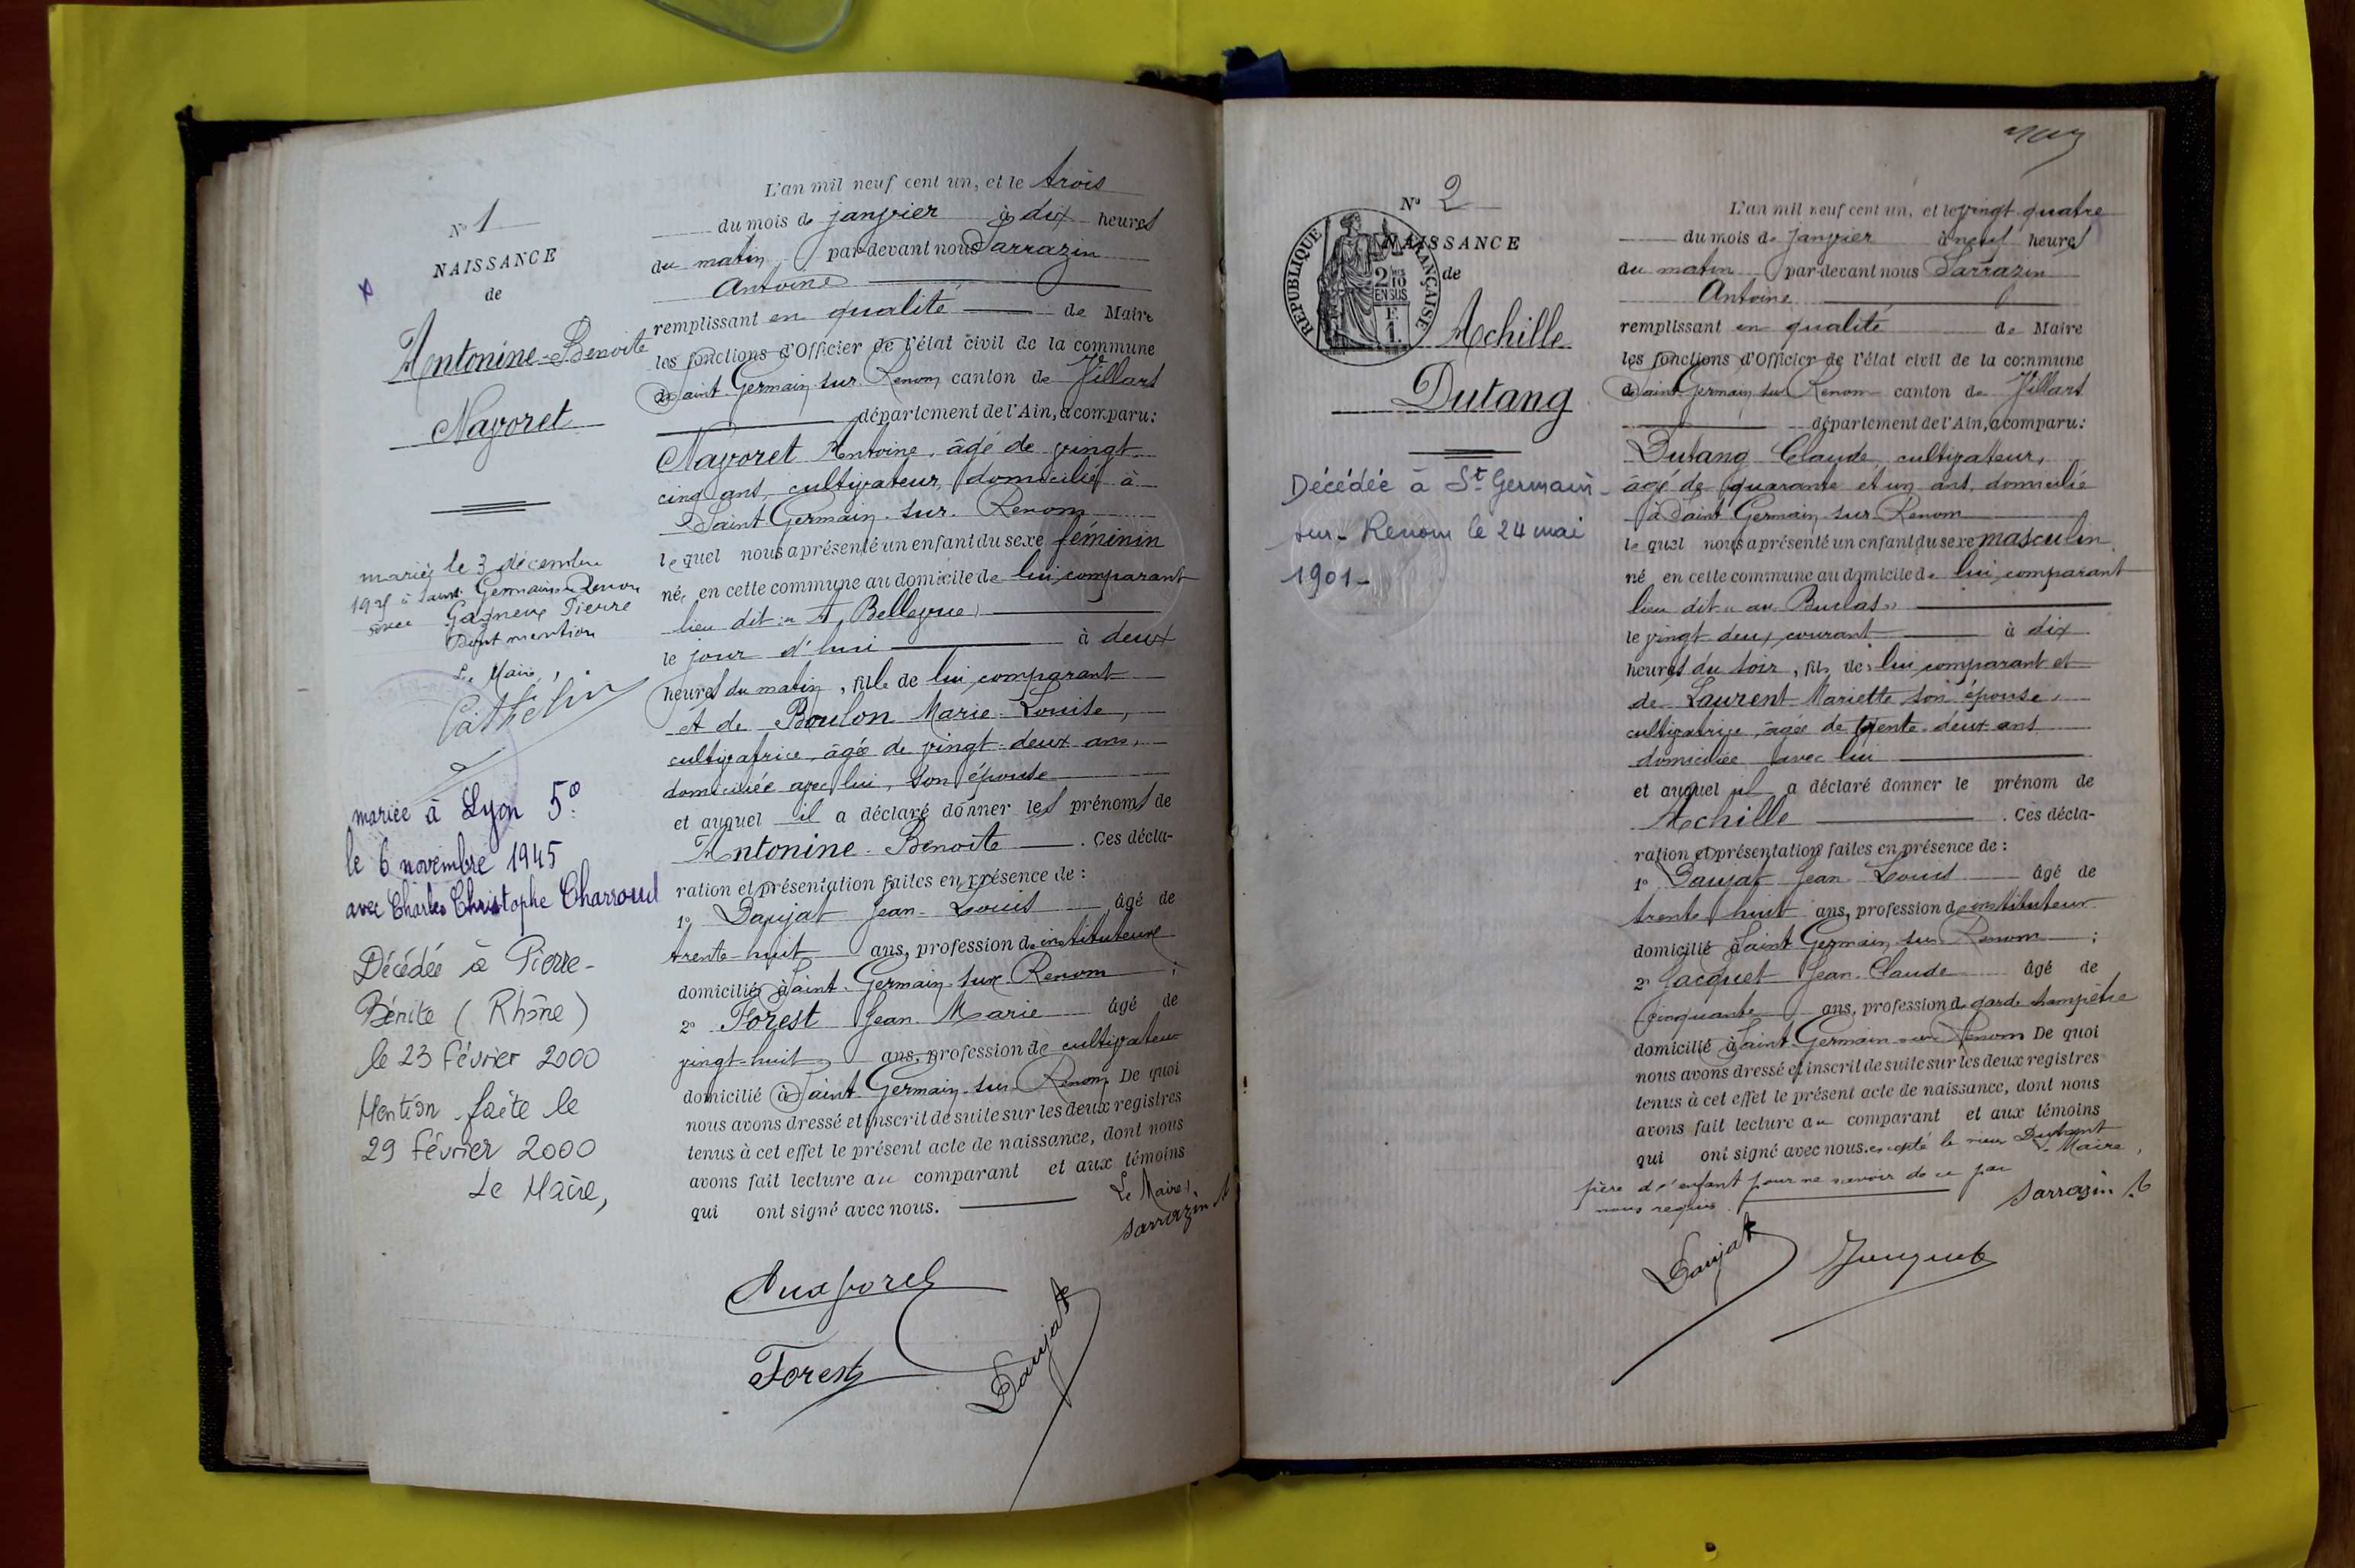 N° 1
NAISSANCE
de
Antonine-Benoite
Nayoret
mariée le 3 décembre
à Saint Germain s Renon
avec Gagneux Pierre
Dont mention
Le Maire,
Cathelin
mariée à Lyon 5e
le 6 novembre 1945
avec Charles Christophe Charroud
Décédée à Pierre-
Bénite (Rhône)
le 23 février 2000
Mention faite le
29 février 2000
Le Maire,
L'an mil neuf cent un, et le trois
du mois de janvier à dix heures
du matin par-devant nous Sarrazin
Antoine
remplissant en qualité de Maire
les fonctions d'Officier de l'état civil de la commune
de Saint-Germain-sur-Renom canton de Villars
département de l'Ain, a comparu:
Nayoret Antoine, âgé de vingt-
cinq ans, cultivateur, domicilié à
Saint-Germain-sur-Renom
lequel nous a présenté un enfant du sexe féminin
née en cette commune au domicile de lui, comparant
lieu dit: « A Bellevue »
le jour d'hui à deux
heures du matin, fille de lui comparant
et de Boulon Marie-Louise,
cultivatrice, âgée de vingt-deux ans,
domiciliée avec lui, son épouse
et auquel il a déclaré donner les prénoms de
Antonine-Benoite. Ces décla-
ration et présentation faites en présence de:
1° Daujat Jean-Louis âgé de
trente-huit ans, profession de instituteur
domicilié à Saint-Germain-sur-Renom;
2° Forest Jean-Marie âgé de
vingt-huit ans, profession de cultivateur
domicilié à Saint-Germain-sur-Renom De quoi
nous avons dressé et inscrit de suite sur les deux registres
tenus à cet effet le présent acte de naissance, dont nous
avons fait lecture au comparant et aux témoins
qui ont signé avec nous.
Le Maire,
Sarrazin A
Forest
Daujat
N° 2
RÉPUBLIQUE FRANÇAISE
2/10 EN SUS
F. 1
NAISSANCE
de
Achille
Dutang
Décédée à St Germain-
sur-Renom le 24 mai
1901-
L'an mil neuf cent un, et le vingt-quatre
du mois de Janvier à neuf heures
du matin par-devant nous Sarrazin
Antoine
remplissant en qualité de Maire
les fonctions d'Officier de l'état civil de la commune
de Saint-Germain-sur-Renom canton de Villars
département de l'Ain, a comparu:
Dutang Claude, cultivateur,
âgé de quarante et un ans, domicilié
à Saint-Germain-sur-Renom
lequel nous a présenté un enfant du sexe masculin
né en cette commune au domicile de lui, comparant
lieu dit « au »
le vingt-deux courant à dix
heures du soir, fils de: lui comparant et
de Laurent Mariette son épouse,
cultivatrice, âgée de trente-deux ans
domiciliée avec lui
et auquel il a déclaré donner le prénom de
Achille. Ces décla-
ration et présentation faites en présence de:
1° Daujat Jean-Louis âgé de
trente-huit ans, profession de instituteur
domicilié à Saint-Germain-sur-Renom;
2° Jacquet Jean-Claude âgé de
cinquante ans, profession de garde champêtre
domicilié à Saint-Germain-sur-Renom De quoi
nous avons dressé et inscrit de suite sur les deux registres
tenus à cet effet le présent acte de naissance, dont nous
avons fait lecture au comparant et aux témoins
qui ont signé avec nous. excepté le sieur Dutang
Le Maire,
père de l'enfant pour ne savoir de ce par
nous requis.
Sarrazin A
Daujat
Jacquet